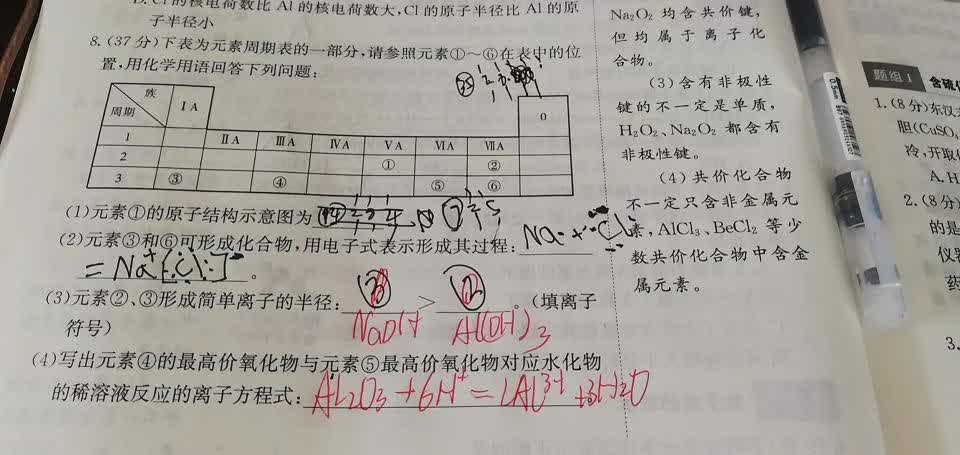 D. Cl 的核电荷数比 Al 的核电荷数大,Cl 的原子半径比 Al 的原
子半径小
8. (37 分)下表为元素周期表的一部分,请参照元素①~⑥在表中的位
置,用化学用语回答下列问题:
族
周期
ⅠA
0
1
ⅡA ⅢA ⅣA ⅤA ⅥA ⅦA
2 ① ②
3 ③ ④ ⑤ ⑥
(1)元素①的原子结构示意图为
(2)元素③和⑥可形成化合物,用电子式表示形成其过程:
(3)元素②、③形成简单离子的半径: > 。(填离子
NaOH Al(OH)3
符号)
(4)写出元素④的最高价氧化物与元素⑤最高价氧化物对应水化物
的稀溶液反应的离子方程式:
Na2O2 均含共价键,
但均属于离子化
合物。
(3)含有非极性
键的不一定是单质,
H2O2、Na2O2 都含有
非极性键。
(4)共价化合物
不一定只含非金属元
素,AlCl3、BeCl2 等少
数共价化合物中含金
属元素。
题组1
1. (8 分)东汉
胆(CuSO4
冷,开取
A. H
2. (8 分)
的是
仪器
药
3.